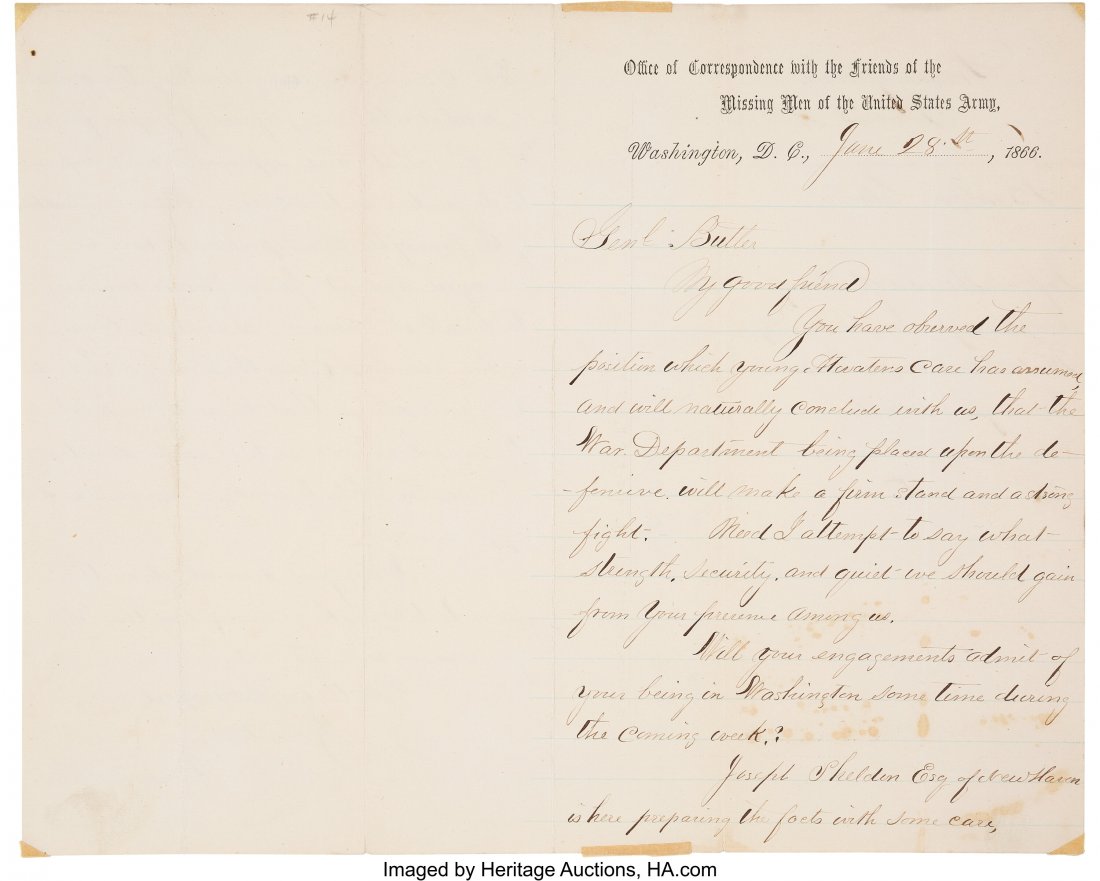 #14
Office of Correspondence with the Friends of the
Missing Men of the United States Army,
Washington, D. C., June 28.st, 1866.
Genl. Butler
My good friend
You have observed the
position which young Atwaters case has assumed,
and will naturally conclude with us, that the
War Department being placed upon the de-
-fensive will make a firm stand and a strong
fight. Need I attempt to say what
strength, security, and quiet we should gain
from your presence among us.
Will your engagements admit of
your being in Washington some time during
the coming week,?
Joseph Sheldon Esq of New Haven
is here preparing the facts with some care,
Imaged by Heritage Auctions, HA.com